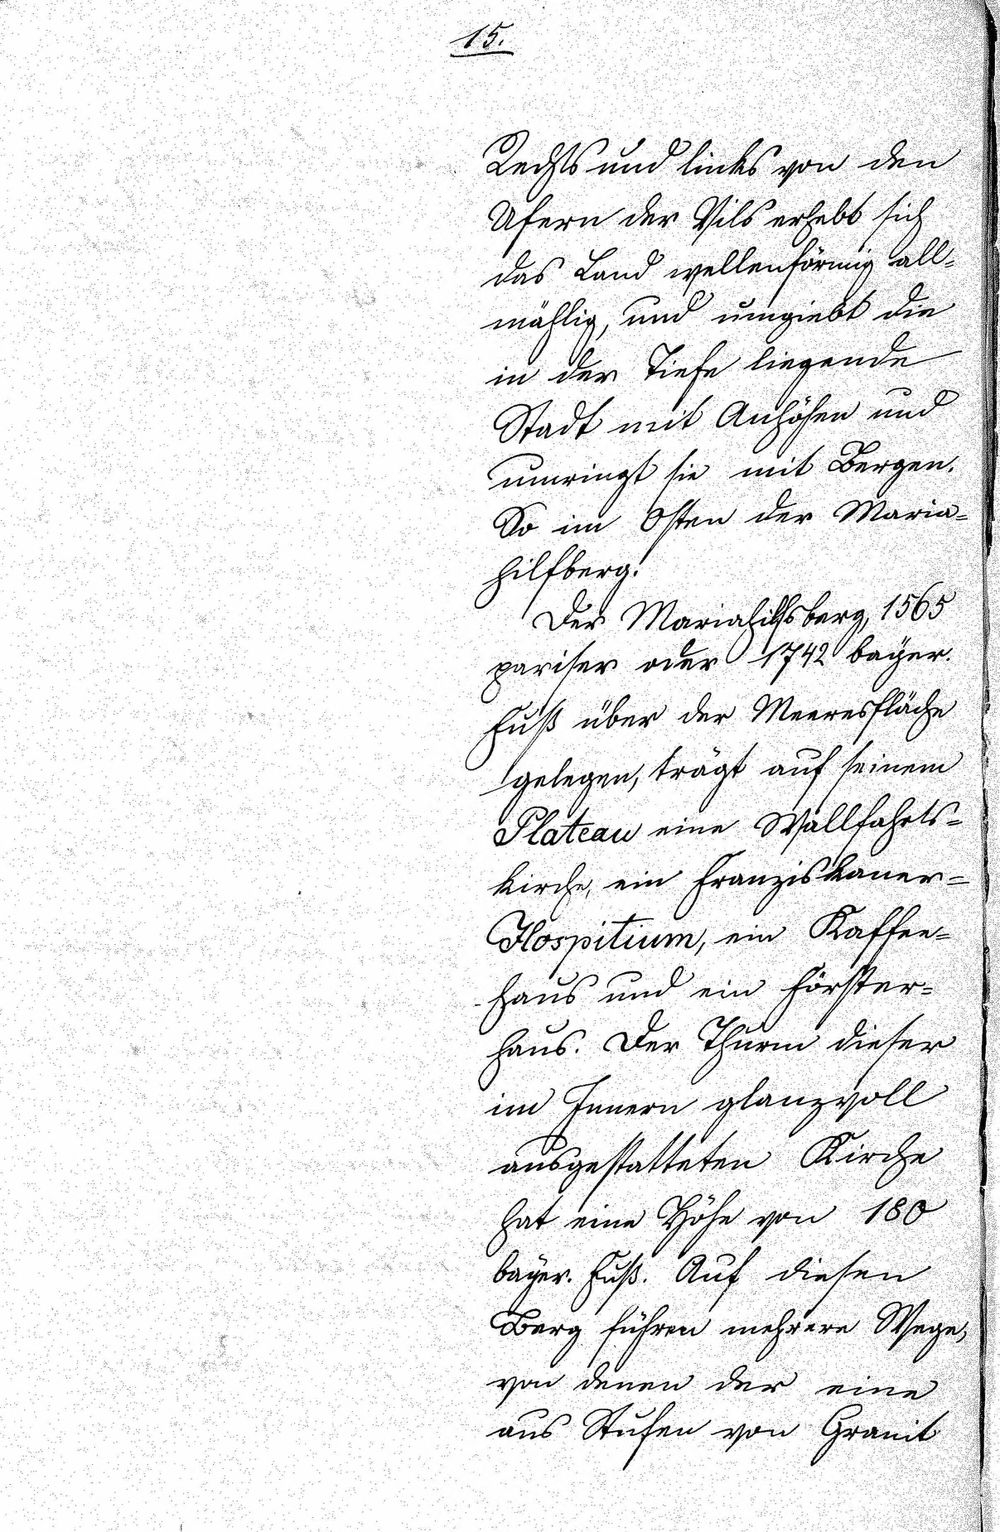 15.
Rechts und links von den
Ufern der Vils erhebt sich
das Land wellenförmig all=
mählig, und umgiebt die
in der Tiefe liegende
Stadt mit Anhöhen und
umringt sie mit Bergen.
So im Osten der Maria=
hilfberg.
Der Mariahilfsberg, 1565
pariser oder 1742 bayer.
Fuß über der Meeresfläche
gelegen, trägt auf seinem
Plateau eine Wallfahrts=
kirche, ein Franziskaner=
Hospitium, ein Kaffee=
haus und ein Förster=
haus. Der Thurm dieser
im Innern glanzvoll
ausgestatteten Kirche
hat eine Höhe von 180
bayer. Fuß. Auf diesen
Berg führen mehrere Wege,
von denen der eine
aus Stufen von Granit